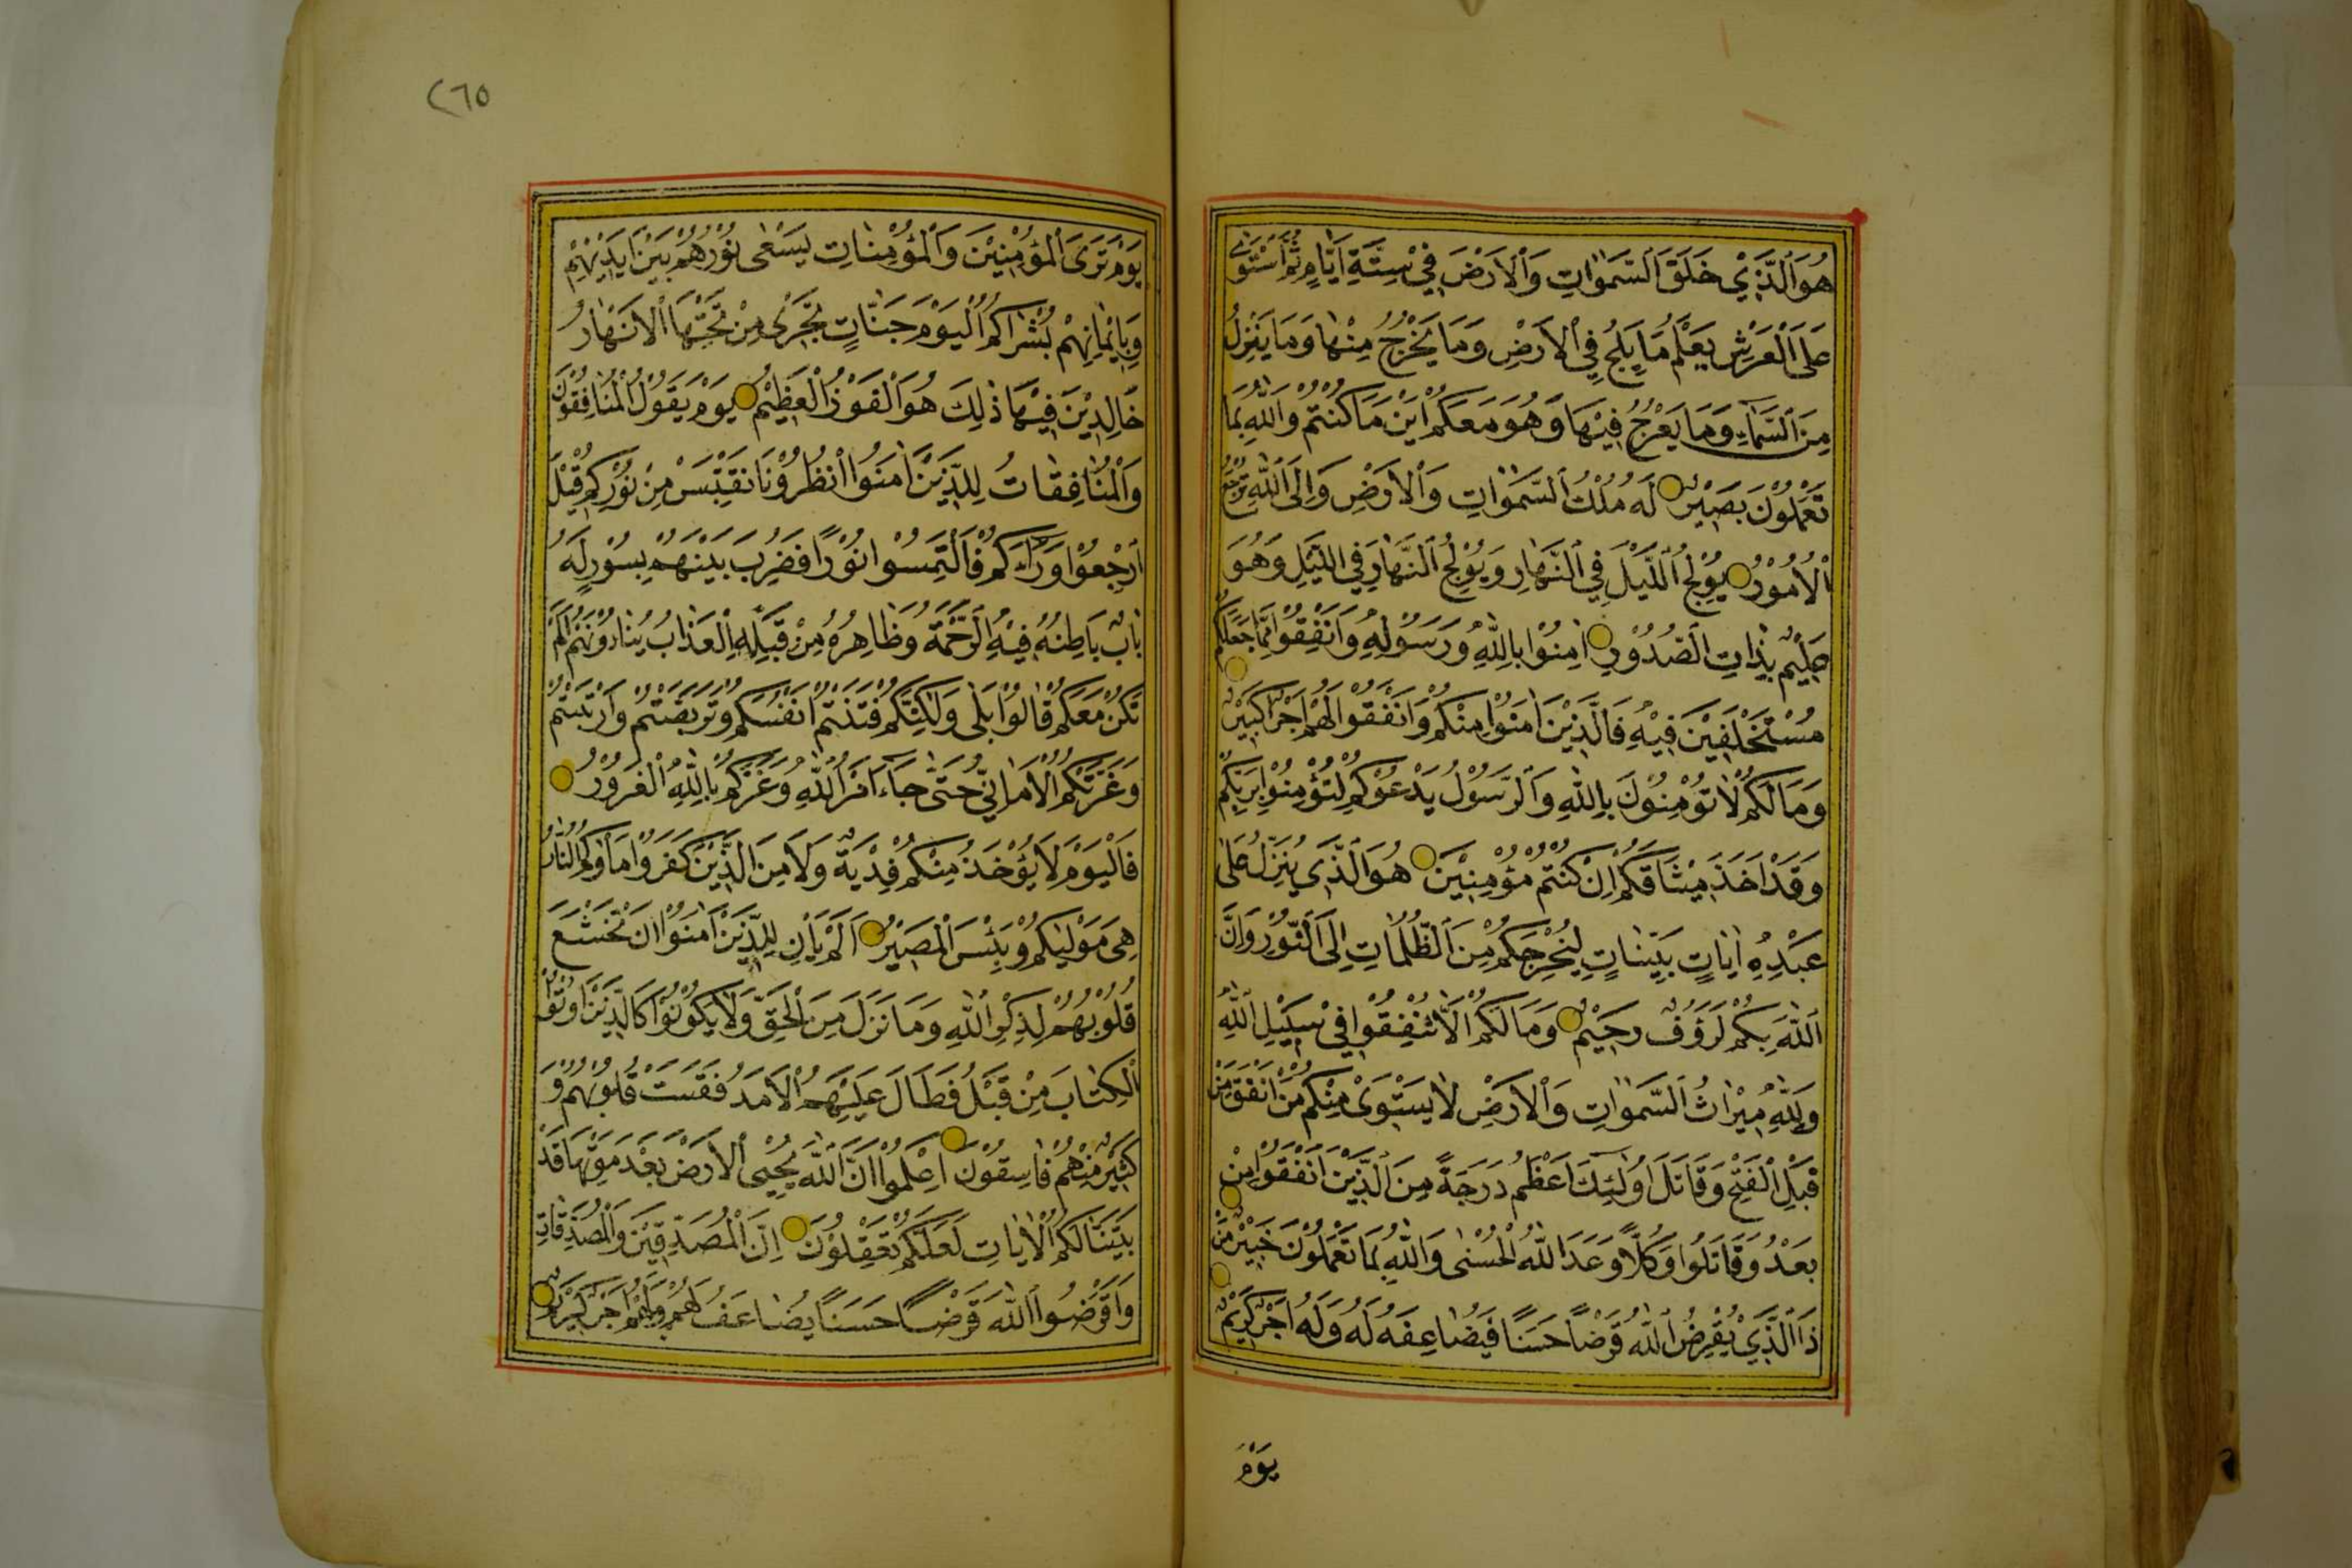 هُوَ ٱلَّذِي خَلَقَ ٱلسَّمٰوَاتِ وَٱلْاَرْضَ فِي سِتَّةِ اَيَّامٍ ثُمَّ ٱسْتَوٰى
عَلَى ٱلْعَرْشِ يَعْلَمُ مَا يَلِجُ فِي ٱلْاَرْضِ وَمَا يَخْرُجُ مِنْهَا وَمَا يَنْزِلُ
مِنَ ٱلسَّمَآءِ وَمَا يَعْرُجُ فِيْهَا وَهُوَ مَعَكُمْ اَيْنَ مَا كُنْتُمْ وَٱللّٰهُ بِمَا
تَعْمَلُوْنَ بَصِيْرٌ لَهُ مُلْكُ ٱلسَّمٰوَاتِ وَٱلْاَرْضِ وَاِلَى ٱللّٰهِ تُرْجَعُ
ٱلْاُمُوْرُ يُوْلِجُ ٱللَّيْلَ فِي ٱلنَّهَارِ وَيُوْلِجُ ٱلنَّهَارَ فِي ٱللَّيْلِ وَهُوَ
عَلِيْمٌ بِذَاتِ ٱلصُّدُوْرِ اٰمِنُوْا بِاللّٰهِ وَرَسُوْلِهِ وَاَنْفِقُوْا مِمَّا جَعَلَكُمْ
مُسْتَخْلَفِيْنَ فِيْهِ فَالَّذِيْنَ اٰمَنُوْا مِنْكُمْ وَاَنْفَقُوْا لَهُمْ اَجْرٌ كَبِيْرٌ
وَمَا لَكُمْ لَا تُؤْمِنُوْنَ بِاللّٰهِ وَٱلرَّسُوْلُ يَدْعُوْكُمْ لِتُؤْمِنُوْا بِرَبِّكُمْ
وَقَدْ اَخَذَ مِيْثَاقَكُمْ اِنْ كُنْتُمْ مُؤْمِنِيْنَ هُوَ ٱلَّذِي يُنَزِّلُ عَلٰى
عَبْدِهِ اٰيَاتٍ بَيِّنَاتٍ لِيُخْرِجَكُمْ مِنَ ٱلظُّلُمَاتِ اِلَى ٱلنُّوْرِ وَاِنَّ
ٱللّٰهَ بِكُمْ لَرَؤُفٌ رَحِيْمٌ وَمَا لَكُمْ اَلَّا تُنْفِقُوْا فِيْ سَبِيْلِ ٱللّٰهِ
وَلِلّٰهِ مِيْرَاثُ ٱلسَّمٰوَاتِ وَٱلْاَرْضِ لَا يَسْتَوِيْ مِنْكُمْ مَنْ اَنْفَقَ مِنْ
قَبْلِ ٱلْفَتْحِ وَقَاتَلَ اُولٰٓئِكَ اَعْظَمُ دَرَجَةً مِنَ ٱلَّذِيْنَ اَنْفَقُوْا مِنْ
بَعْدُ وَقَاتَلُوا وَكُلًّا وَعَدَ ٱللّٰهُ ٱلْحُسْنٰى وَٱللّٰهُ بِمَا تَعْمَلُوْنَ خَبِيْرٌ مَنْ
ذَا ٱلَّذِيْ يُقْرِضُ ٱللّٰهَ قَرْضًا حَسَنًا فَيُضَاعِفَهُ لَهُ وَلَهُ اَجْرٌ كَرِيْمٌ
يَوْمَ
٢٦٥
يَوْمَ تَرَى ٱلْمُؤْمِنِيْنَ وَٱلْمُؤْمِنَاتِ يَسْعٰى نُوْرُهُمْ بَيْنَ اَيْدِيْهِمْ
وَبِاَيْمَانِهِمْ بُشْرَاكُمُ ٱلْيَوْمَ جَنَّاتٌ تَجْرِى مِنْ تَحْتِهَا ٱلْاَنْهَارُ
خَالِدِيْنَ فِيْهَا ذٰلِكَ هُوَ ٱلْفَوْزُ ٱلْعَظِيْمُ يَوْمَ يَقُوْلُ ٱلْمُنَافِقُوْنَ
وَٱلْمُنَافِقَاتُ لِلَّذِيْنَ اٰمَنُوا ٱنْظُرُوْنَا نَقْتَبِسْ مِنْ نُوْرِكُمْ قِيْلَ
ٱرْجِعُوْا وَرَآءَكُمْ فَالْتَمِسُوْا نُوْرًا فَضُرِبَ بَيْنَهُمْ بِسُوْرٍ لَهُ
بَابٌ بَاطِنُهُ فِيْهِ ٱلرَّحْمَةُ وَظَاهِرُهُ مِنْ قِبَلِهِ ٱلْعَذَابُ يُنَادُوْنَهُمْ اَلَمْ
نَكُنْ مَعَكُمْ قَالُوْا بَلٰى وَلٰكِنَّكُمْ فَتَنْتُمْ اَنْفُسَكُمْ وَتَرَبَّصْتُمْ وَٱرْتَبْتُمْ
وَغَرَّتْكُمُ ٱلْاَمَانِيُّ حَتّٰى جَآءَ اَمْرُ ٱللّٰهِ وَغَرَّكُمْ بِاللّٰهِ ٱلْغَرُوْرُ
فَالْيَوْمَ لَا يُؤْخَذُ مِنْكُمْ فِدْيَةٌ وَلَا مِنَ ٱلَّذِيْنَ كَفَرُوْا مَأْوٰىكُمُ ٱلنَّارُ
هِيَ مَوْلٰيكُمْ وَبِئْسَ ٱلْمَصِيْرُ اَلَمْ يَأْنِ لِلَّذِيْنَ اٰمَنُوْا اَنْ تَخْشَعَ
قُلُوْبُهُمْ لِذِكْرِ ٱللّٰهِ وَمَا نَزَلَ مِنَ ٱلْحَقِّ وَلَا يَكُوْنُوْا كَالَّذِيْنَ اُوْتُوْا
ٱلْكِتَابَ مِنْ قَبْلُ فَطَالَ عَلَيْهِمُ ٱلْاَمَدُ فَقَسَتْ قُلُوْبُهُمْ وَ
كَثِيْرٌ مِنْهُمْ فَاسِقُوْنَ اِعْلَمُوْا اَنَّ ٱللّٰهَ يُحْيِى ٱلْاَرْضَ بَعْدَ مَوْتِهَا قَدْ
بَيَّنَّا لَكُمُ ٱلْاٰيَاتِ لَعَلَّكُمْ تَعْقِلُوْنَ اِنَّ ٱلْمُصَّدِّقِيْنَ وَٱلْمُصَّدِّقَاتِ
وَاَقْرَضُوا ٱللّٰهَ قَرْضًا حَسَنًا يُضَاعَفُ لَهُمْ وَلَهُمْ اَجْرٌ كَرِيْمٌ